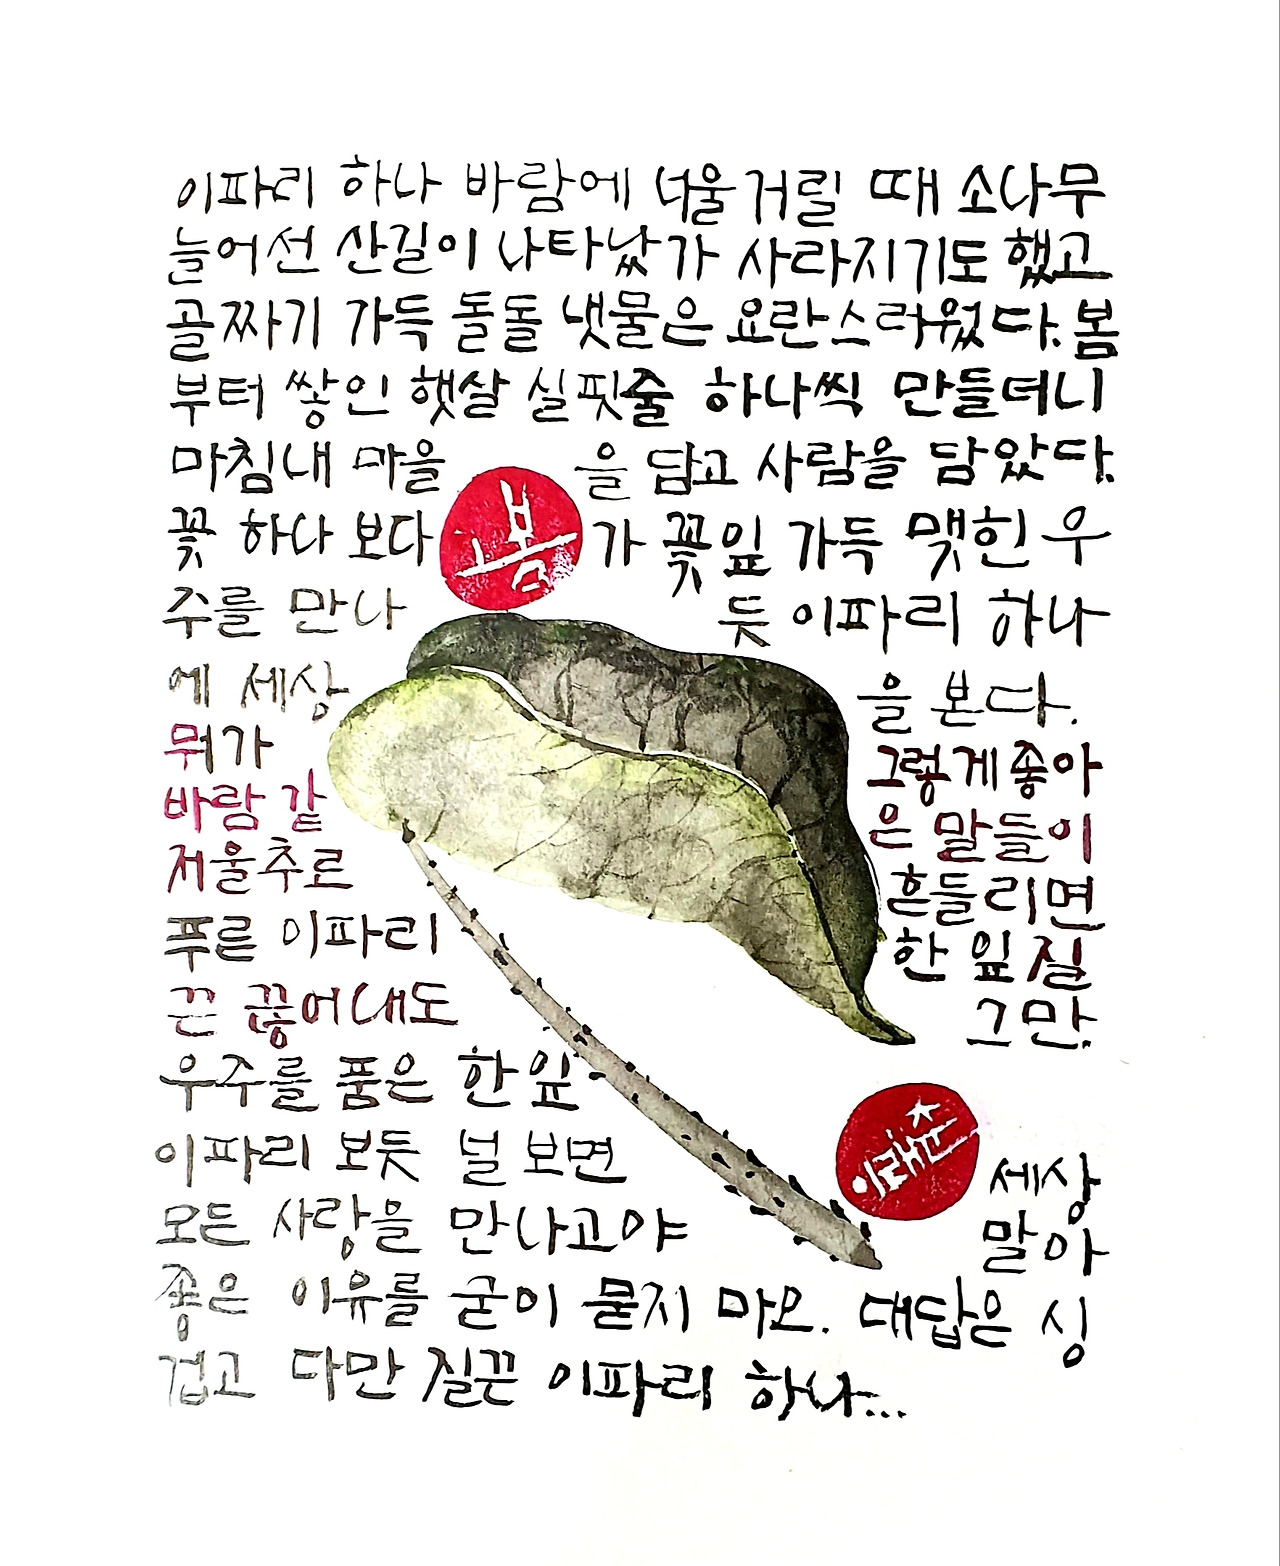 이파리 하나 바람에 너울거릴 때 소나무
늘어선 산길이 나타났가 사라지기도 했고
골짜기 가득 돌돌 냇물은 요란스러웠다. 봄
부터 쌓인 햇살 실핏줄 하나씩 만들더니
마침내 마을 을 담고 사람을 담았다.
꽃 하나 보다 봄 가 꽃잎 가득 맺힌 우
주를 만나 듯 이파리 하나
에 세상 을 본다.
뭐가 그렇게 좋아
바람 같 은 말들이
저울추로 흔들리면
푸른 이파리 한 잎 질
끈 끊어내도 그만.
우주를 품은 한 잎
이파리 보듯 널 보면 세상
모든 사랑을 만나고야 말아
좋은 이유를 굳이 묻지 마오. 대답은 싱
겁고 다만 질끈 이파리 하나...
이래춘